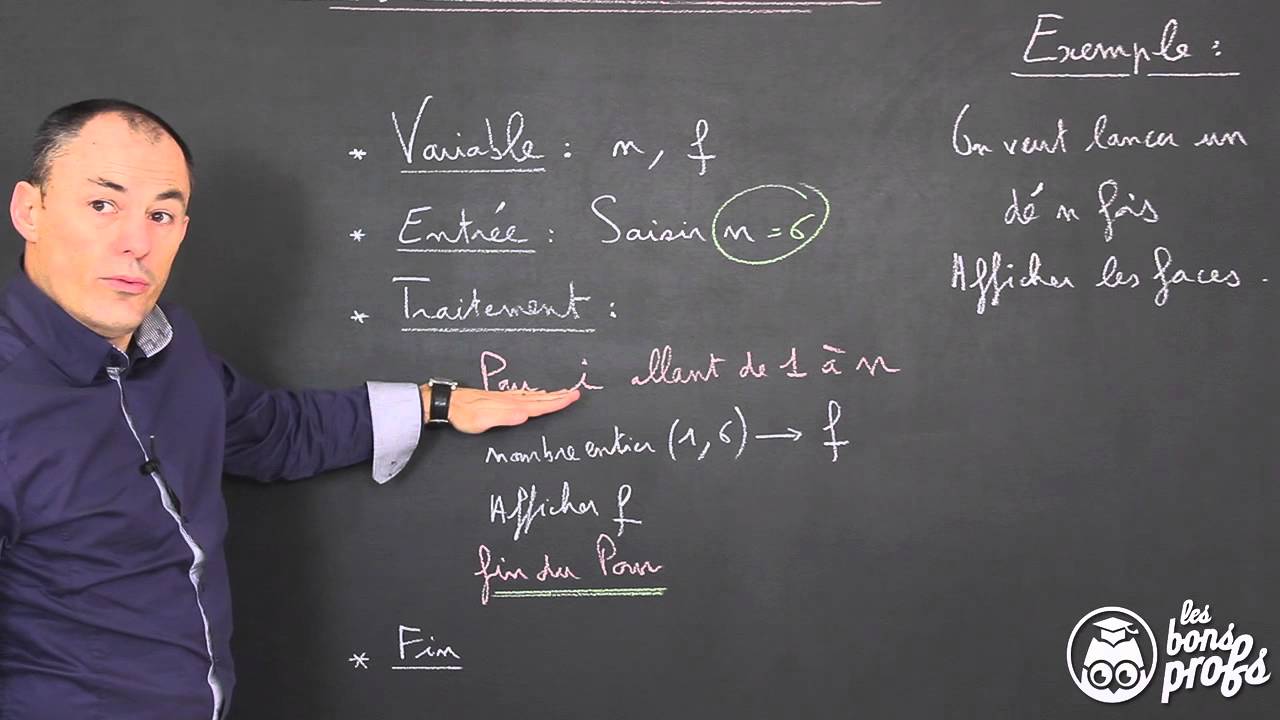 * Variable : n, f
* Entrée : Saisir n = 6
* Traitement :
Pour i allant de 1 à n
nombre entier (1, 6) → f
Afficher f
fin du Pour
* Fin
Exemple :
On veut lancer un
dé n fois
Afficher les faces.
les
bons
profs